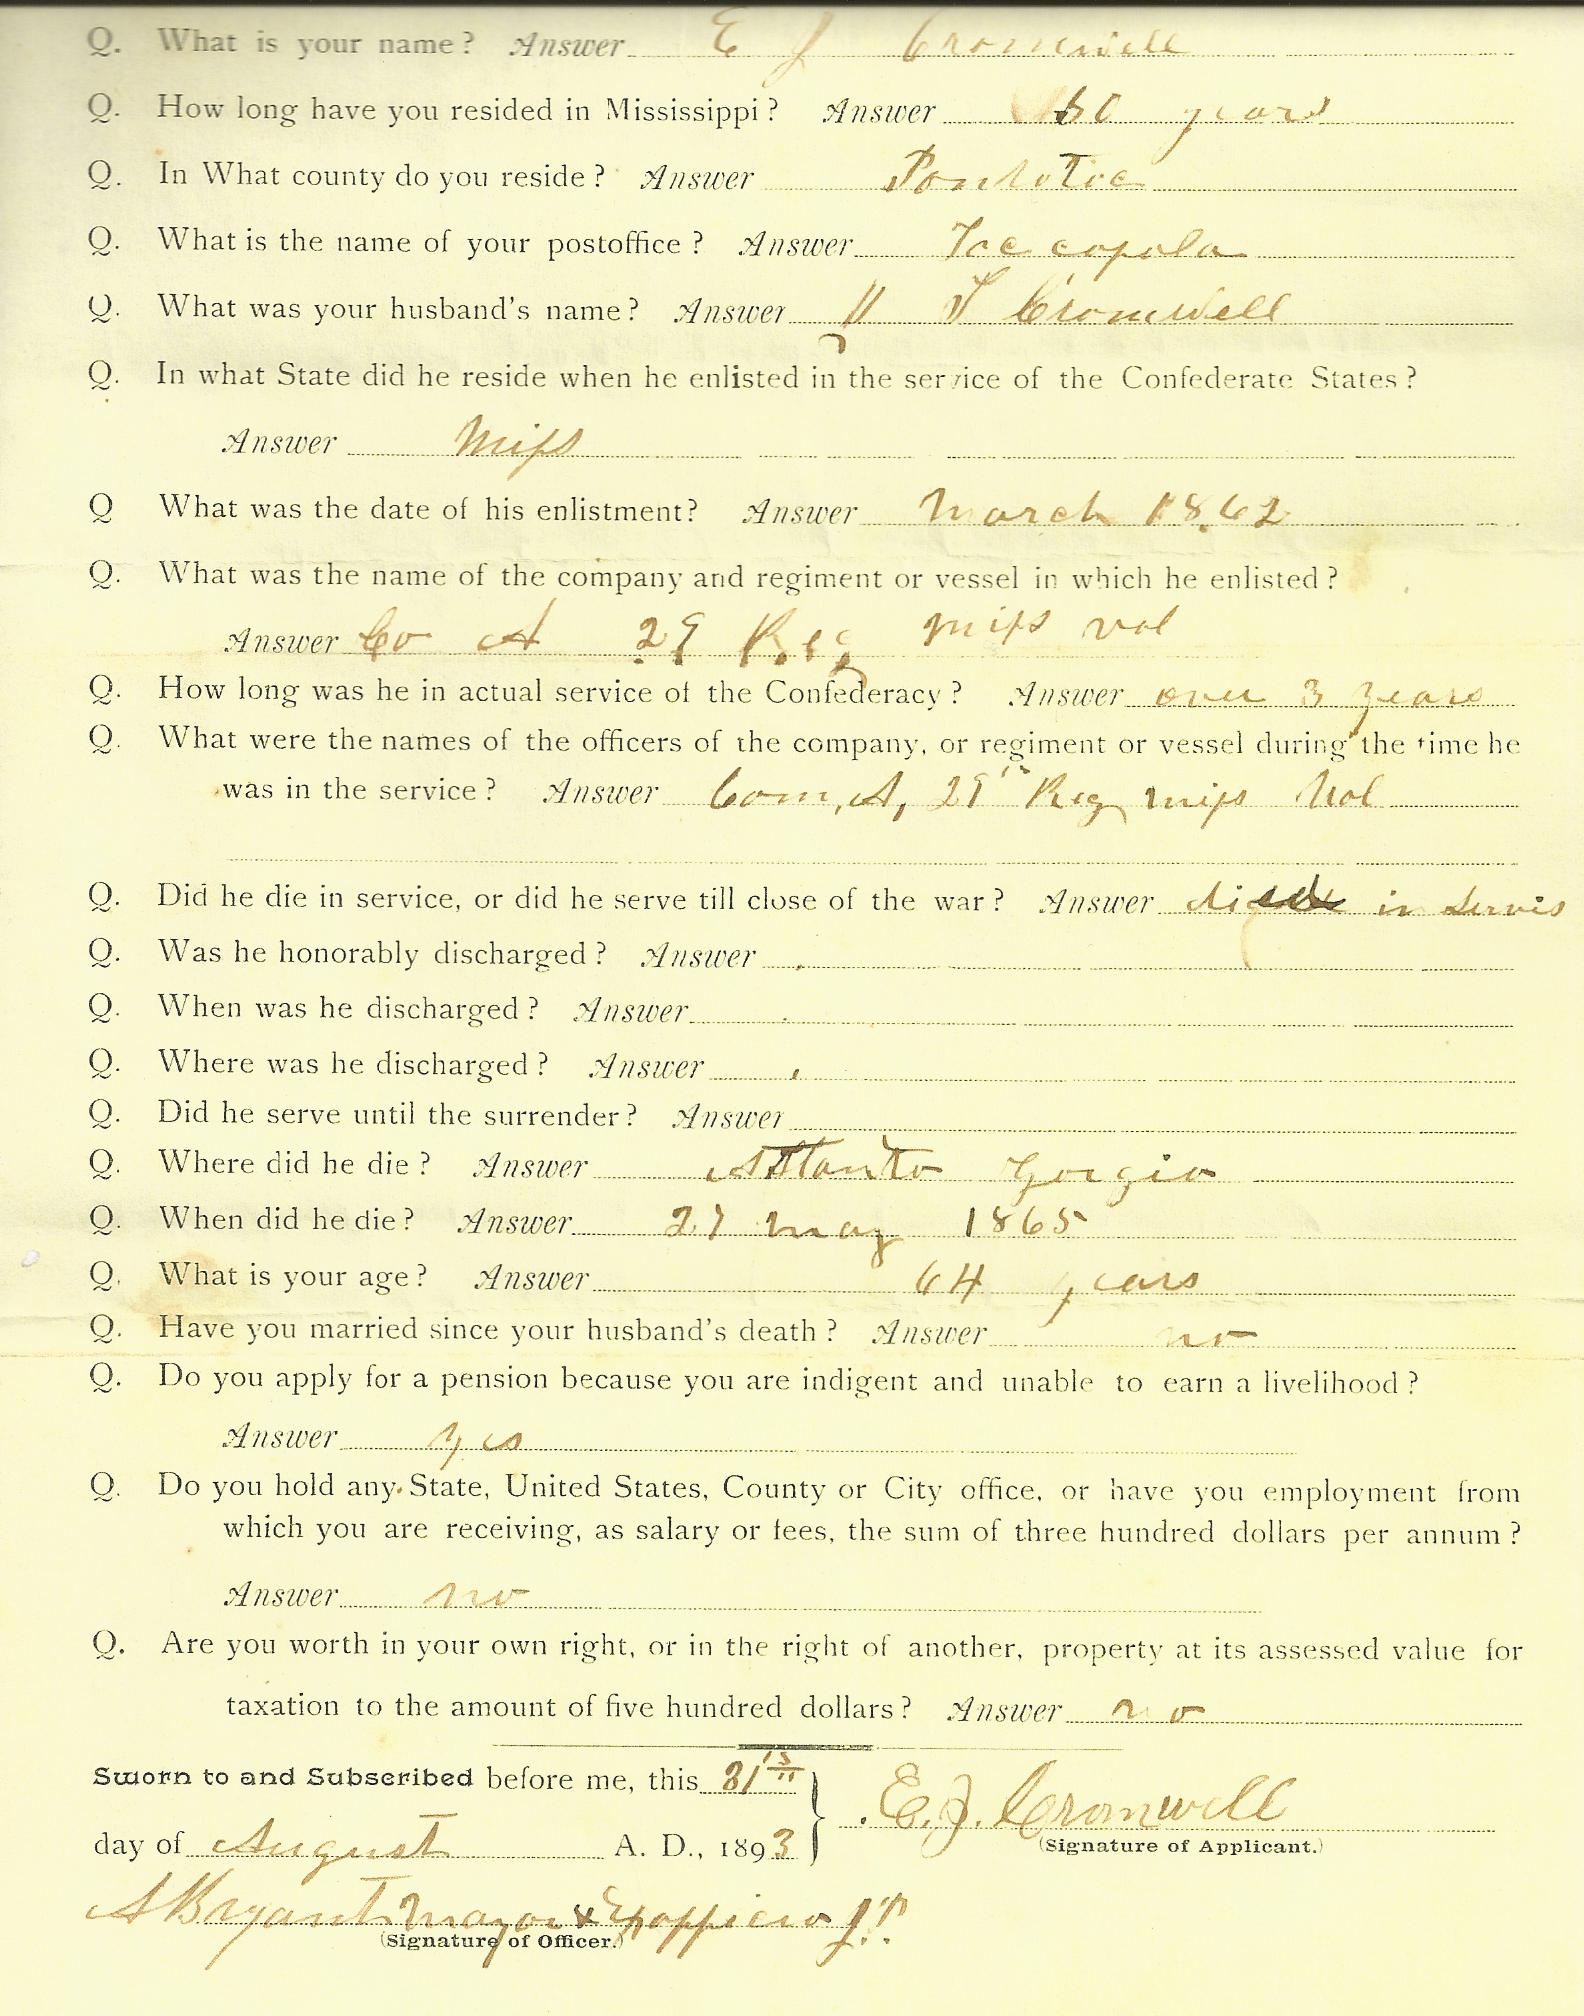 Q. What is your name? Answer E J Cromwell
Q. How long have you resided in Mississippi? Answer 50 years
Q. In What county do you reside? Answer Pontotoc
Q. What is the name of your postoffice? Answer Toccopola
Q. What was your husband's name? Answer T Cromwell
Q. In what State did he reside when he enlisted in the service of the Confederate States?
Answer Miss
Q What was the date of his enlistment? Answer March 1862
Q. What was the name of the company and regiment or vessel in which he enlisted?
Answer Co A 29 Reg Miss vol
Q. How long was he in actual service of the Confederacy? Answer over 3 years
Q. What were the names of the officers of the company, or regiment or vessel during the time he
was in the service? Answer Com, A, 29th Reg Miss Vol
Q. Did he die in service, or did he serve till close of the war? Answer died in Servis
Q. Was he honorably discharged? Answer
Q. When was he discharged? Answer
Q. Where was he discharged? Answer
Q. Did he serve until the surrender? Answer
Q. Where did he die? Answer Attlanta Gorgia
Q. When did he die? Answer may 1865
Q. What is your age? Answer 64 years
Q. Have you married since your husband's death? Answer no
Q. Do you apply for a pension because you are indigent and unable to earn a livelihood?
Answer yes
Q. Do you hold any State, United States, County or City office, or have you employment from
which you are receiving, as salary or fees, the sum of three hundred dollars per annum?
Answer no
Q. Are you worth in your own right, or in the right of another, property at its assessed value for
taxation to the amount of five hundred dollars? Answer no
Sworn to and Subscribed before me, this 31st
E. J. Cromwell
day of August A. D., 1893
(Signature of Applicant.)
A Bryant Mayor & Exofficio J.P.
(Signature of Officer.)